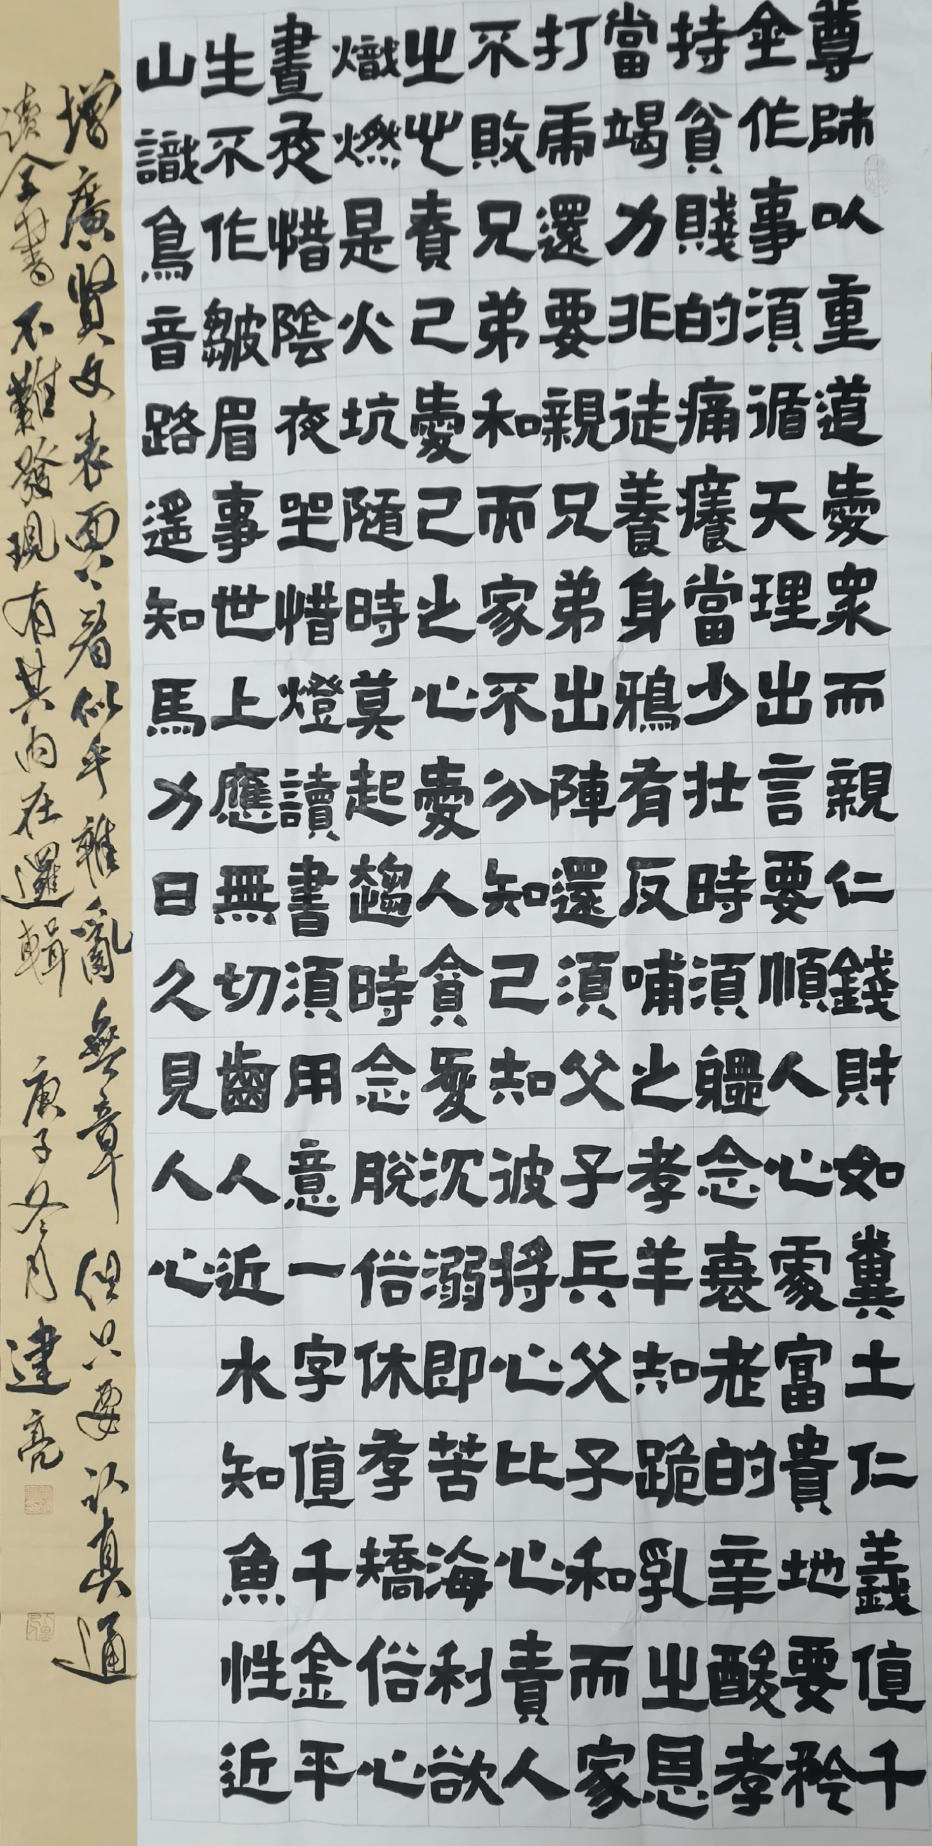 尊師以重道愛眾而親仁錢財如糞土仁義值千
金作事須循天理出言要順人心處富貴地要矜
持貧賤的痛癢當少壯時須體念衰老的辛酸孝
當竭力非徒養身鴉有反哺之孝羊知跪乳之恩
打虎還要親兄弟出陣還須父子兵父子和而家
不敗兄弟和而家不分知己知彼將心比心責人
之心責己愛己之心愛人貪愛沉溺即苦海利欲
熾燃是火坑隨時莫起趨時念脫俗休存矯俗心
晝夜惜陰夜坐惜燈讀書須用意一字值千金平
生不作皺眉事世上應無切齒人近水知魚性近
山識鳥音路遙知馬力日久見人心
增廣賢文表面上看似乎雜亂無章但只要认真通
读全書不難發現有其內在邏輯 庚子冬月建亮